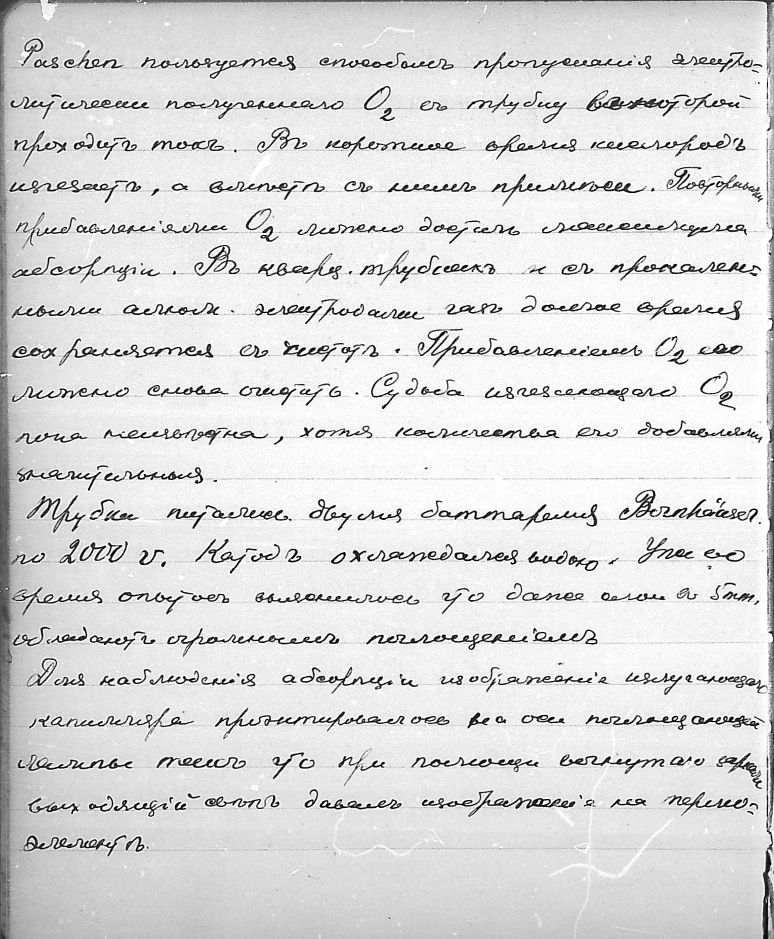 Paschen пользуется способомъ пропусканія электро-
литически полученнаго O2 въ трубку въ которой
проходитъ токъ. Въ короткое время кислородъ
изчезаетъ, а вмѣстѣ съ нимъ примѣси. Повторными
прибавленіями O2 можно достичь максимума
абсорпціи. Въ кварц. трубкахъ и съ прокален-
ными алюм. электродами газъ долгое время
сохраняется въ чистотѣ. Прибавленіемъ O2 его
можно снова очистить. Судьба изчезающаго O2
пока неизвѣстна, хотя количества его добавляемыя
значительныя.
Трубки питались двумя баттареями Bornhäuser.
по 2000 v. Катодъ охлаждался водою. Уже во
время опытовъ выяснилось что даже слои въ 5mm.
обладаютъ огромнымъ поглощеніемъ
Для наблюденія абсорпціи изображеніе излучающаго
капилляра проэктировалось на оси поглощающей
лампы такъ что при помощи вогнутаго зеркала
выходящій свѣтъ давалъ изображеніе на термо-
элементѣ.